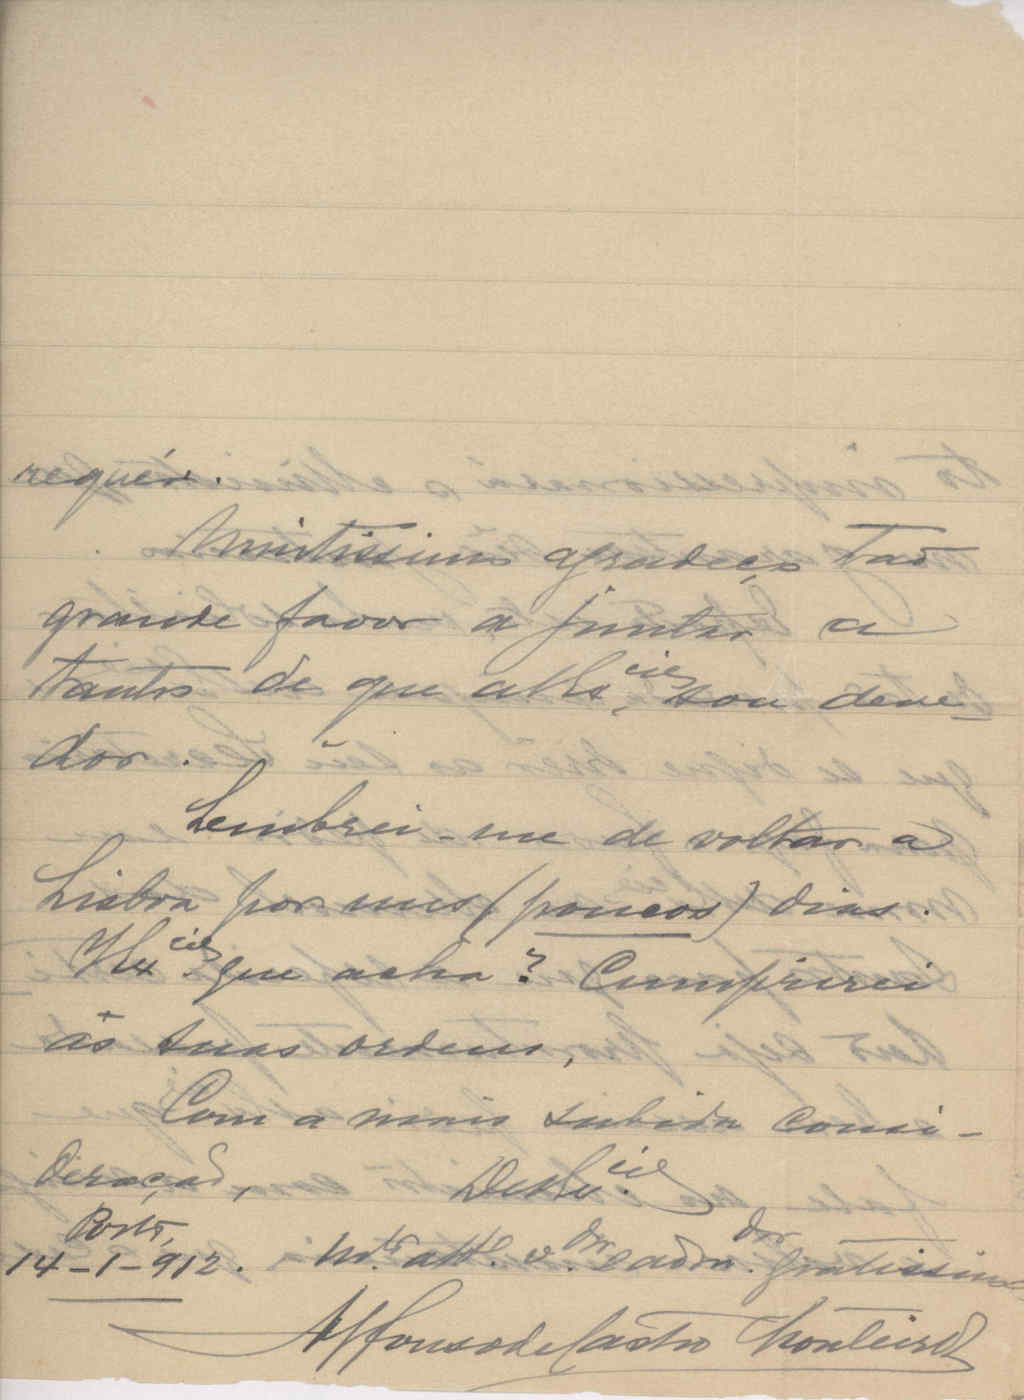 requér.
Muitissimo agradeço tão
grande favor a juntar a
tantos de que a V. Ex.cia sou deve-
dor.
Lembrei-me de voltar a
Lisboa por uns (poucos) dias.
V. Ex.cia que acha? Cumprirei
ás suas ordens,
Com a mais subida consi-
deração,
De V. Ex.cia
Porto,
14-1-912. M.to att.o v.dor e admdor. gratissimo
Affonso de Castro Monteiro